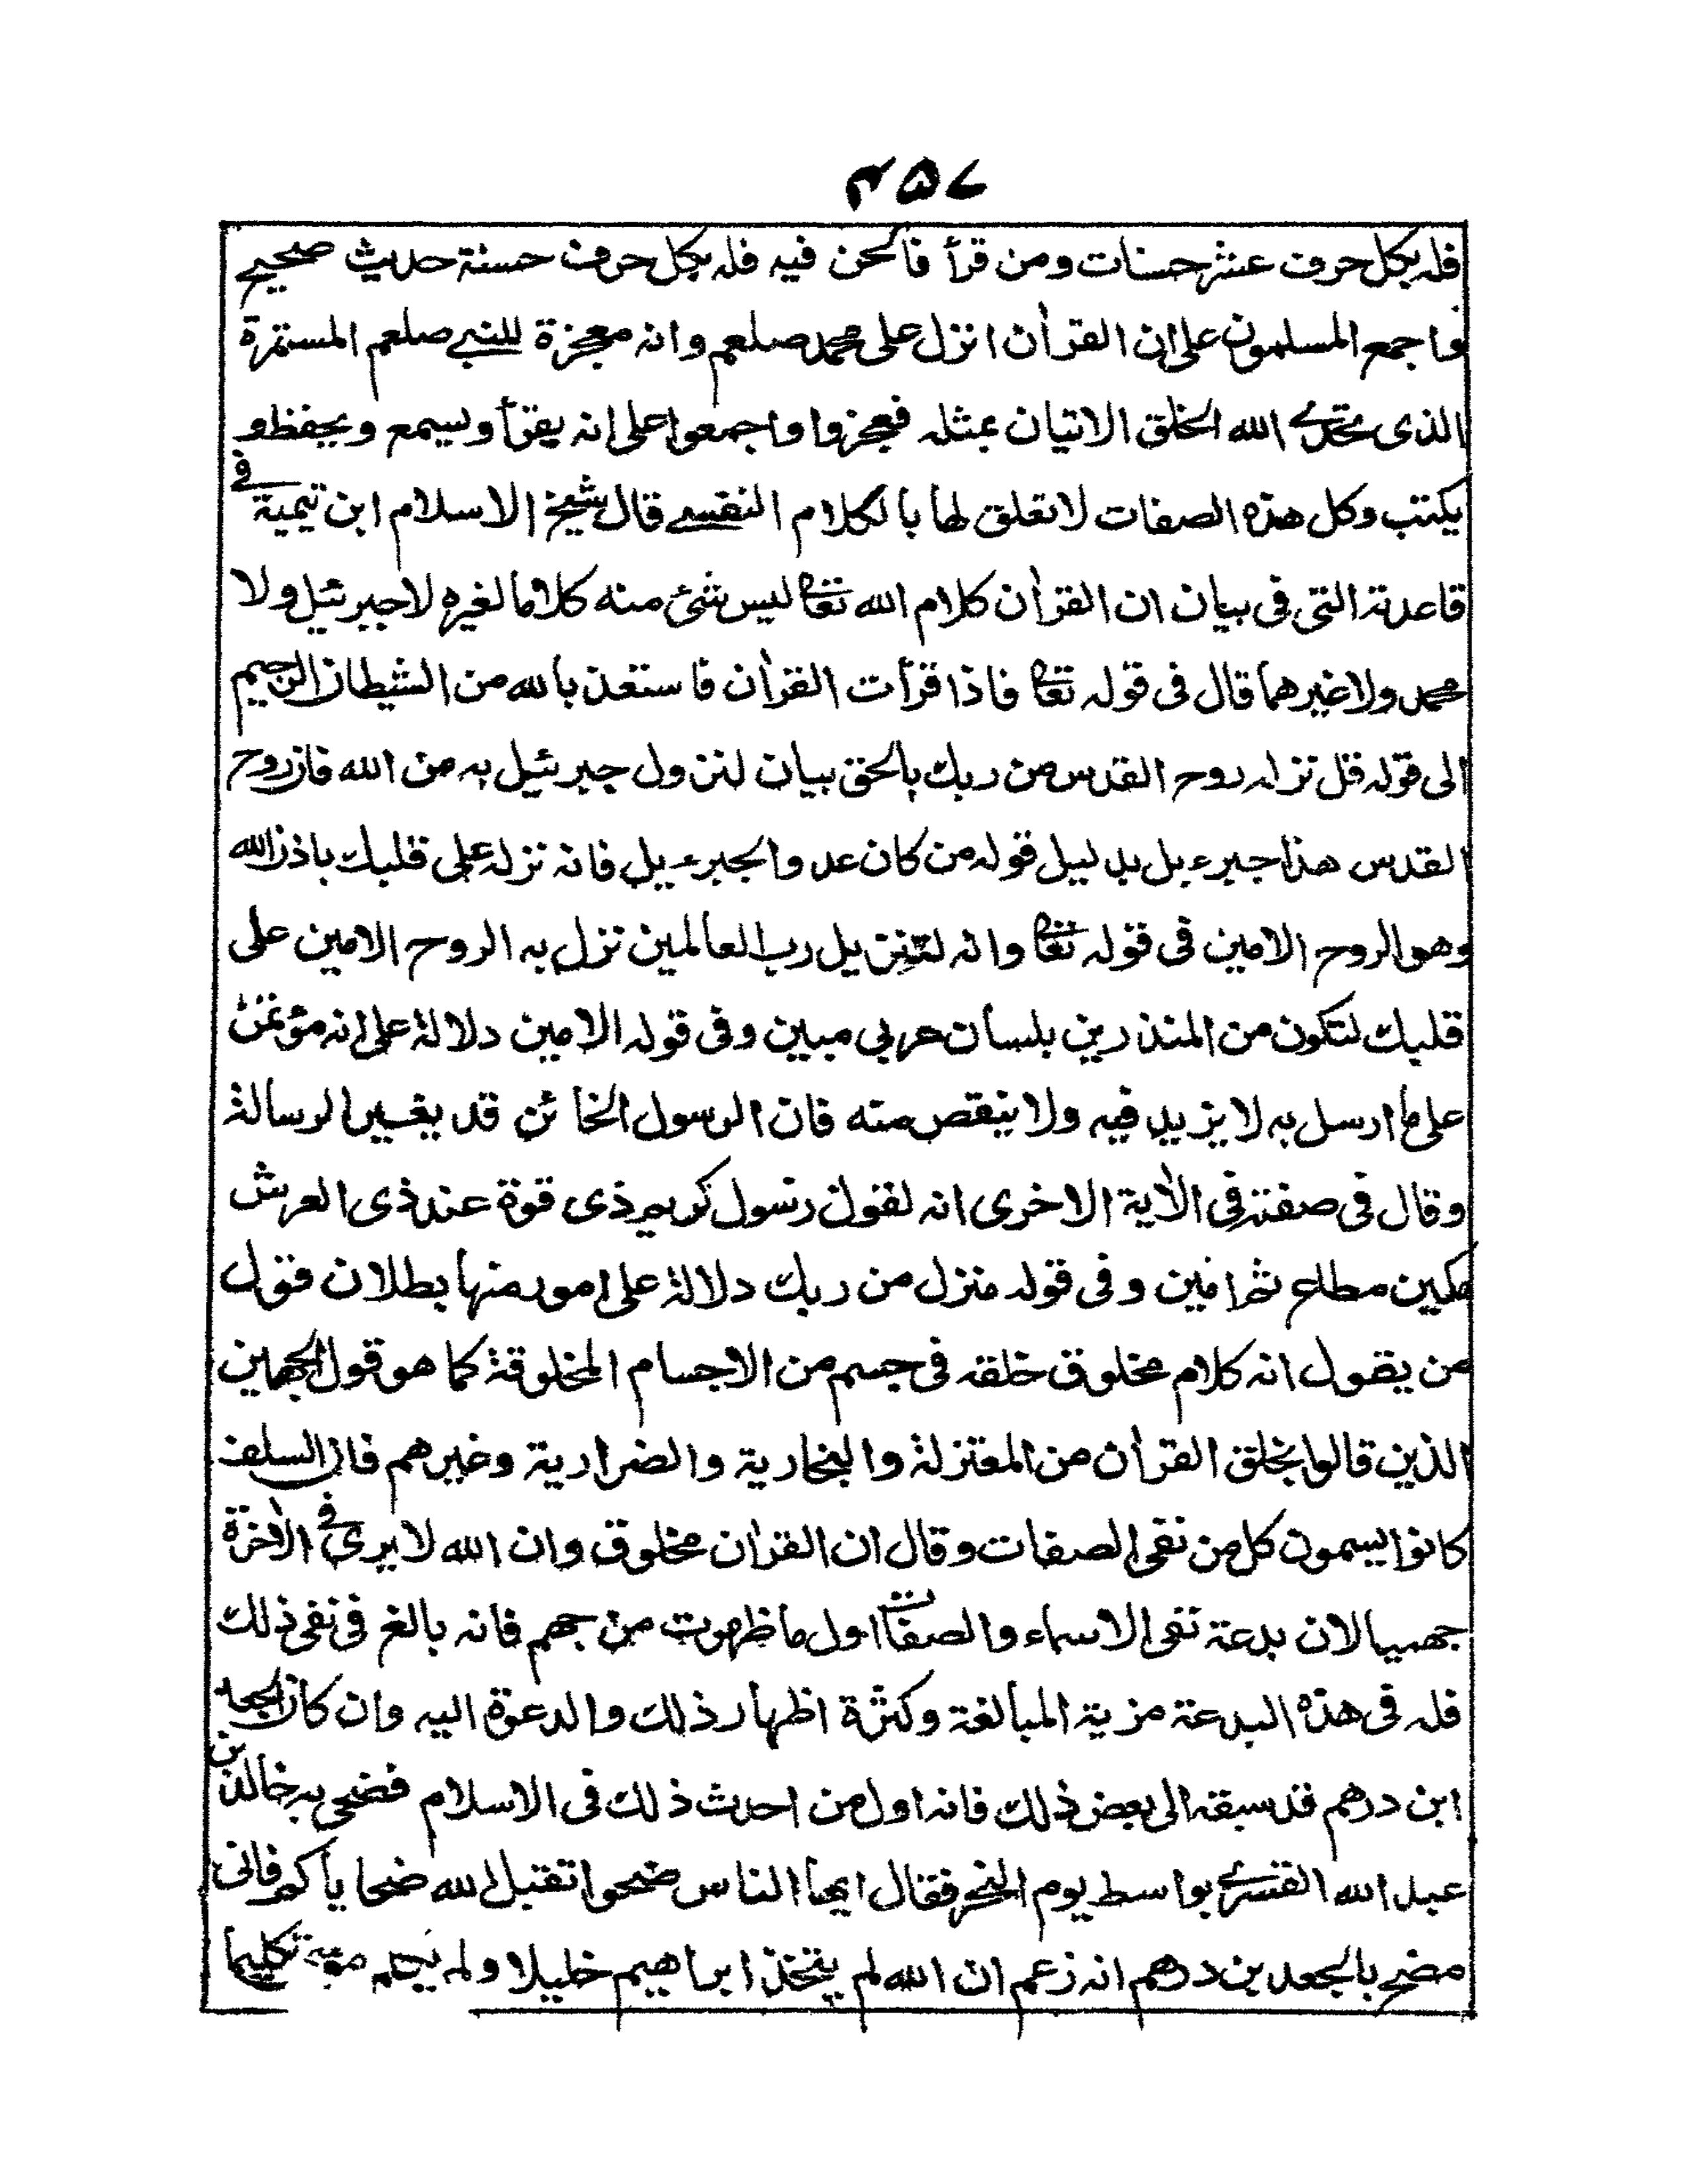 ٤٥٧
فله بكل حرف عشر حسنات ومن قرأ فالحن فيه فله بكل حرف حسنة حديث صحيح
واجمع المسلمون على ان القرأن انزل على محمد صلعم وانه معجزة للنبي صلعم المستمرة
الذى تحدى الله الخلق الاتيان بمثله فعجزوا واجمعوا على انه يقرأ ويسمع ويحفظ و
يكتب وكل هذه الصفات لا تعلق لها بالكلام النفسي قال شيخ الاسلام ابن تيمية فى
قاعدته التى فى بيان ان القرأن كلام الله تعالى ليس شئ منه كلاما لغيره لا جبرئيل ولا
محمد ولا غيرهما قال فى قوله تعالى فاذا قرأت القرأن فاستعذ بالله من الشيطان الرجيم
الى قوله قل نزله روح القدس من ربك بالحق بيان لنزول جبرئيل به من الله فان روح
القدس هذا جبرءيل بدليل قوله من كان عدوا لجبرءيل فانه نزله على قلبك باذن الله
وهو الروح الامين فى قوله تعالى وانه لتنزيل رب العالمين نزل به الروح الامين على
قلبك لتكون من المنذرين بلسان عربي مبين وفى قوله الامين دلالة على انه مؤتمن
على ما ارسل به لا يزيد فيه ولا ينقص منه فان الرسول الخائن قد يغير الرسالة
وقال فى صفته فى الأية الاخرى انه لقول رسول كريم ذى قوة عند ذى العرش
مكين مطاع ثم امين وفى قوله منزل من ربك دلالة على امور منها بطلان قول
من يقول انه كلام مخلوق خلقه فى جسم من الاجسام المخلوقة كما هو قول الجهمين
الذين قالوا بخلق القرأن من المعتزلة والنجارية والضرارية وغيرهم فان السلف
كانوا يسمون كل من نفى الصفات وقال ان القرأن مخلوق وان الله لا يرى فى الأخرة
جهميا لان بدعة نفى الاسماء والصفات اول ما ظهرت من جهم فانه بالغ فى نفى ذلك
فله فى هذه البدعة مزية المبالغة وكثرة اظهار ذلك والدعوة اليه وان كان الجعد
ابن درهم قد سبقه الى بعض ذلك فانه اول من احدث ذلك فى الاسلام فضحى به خالد بن
عبد الله القسرى بواسط يوم النحر فقال ايها الناس ضحوا تقبل الله ضحاياكم فانى
مضح بالجعد بن درهم انه زعم ان الله لم يتخذ ابراهيم خليلا ولم يكلم تكليما